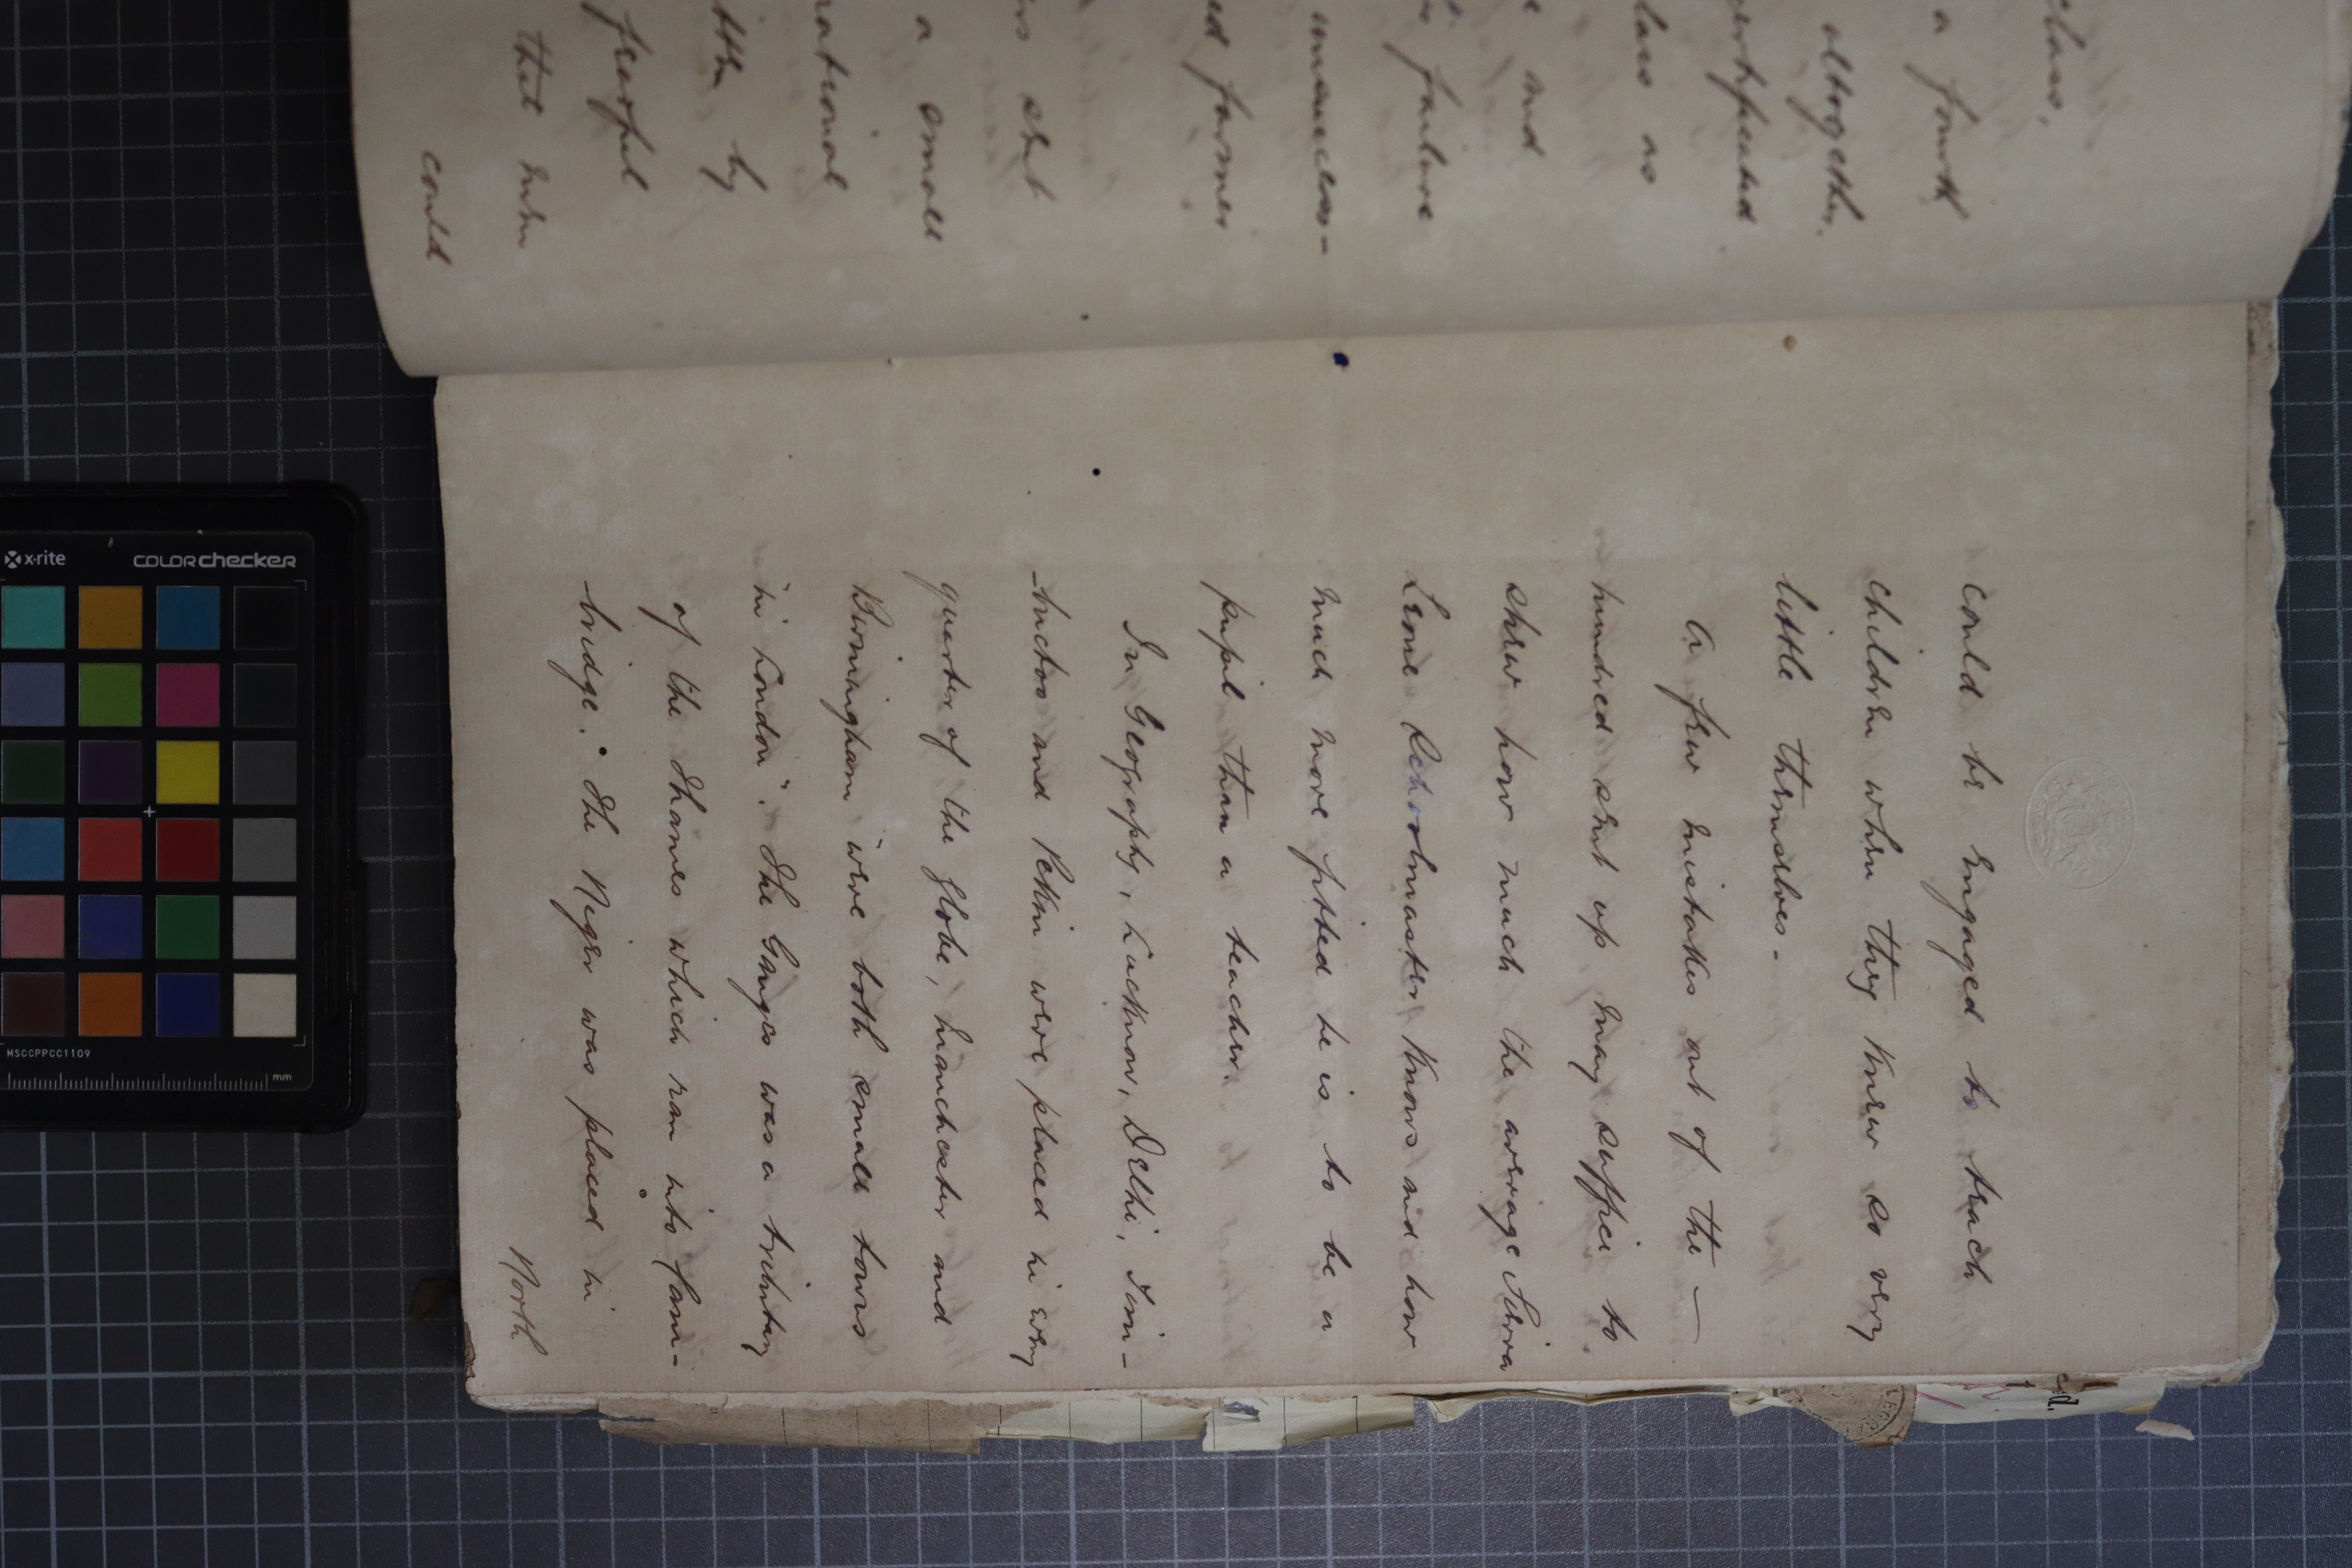 class,
a fourth
altogether.
certificated
class as
and
failure
unsuccess-
ed former
s
shet
a small
rational
by
fearful
that when
could
could be engaged to teach
children when they knew so very
little themselves.
A few mistakes out of the —
hundred sent up may suffice to
shew how much the average Sierra
Leone Schoolmaster knows and how
much more fitted he is to be a
pupil than a teacher.
In Geography, Lucknow, Delhi, Tim-
-buctoo and Pekin were placed in every
quarter of the globe, Manchester and
Birmingham "were both small towns
in London". The Ganges was a tributary
of the Thames which ran into Cam-
-bridge." The Niger was placed in
North
x·rite
COLORchecker
MSCCPPCC1109
mm